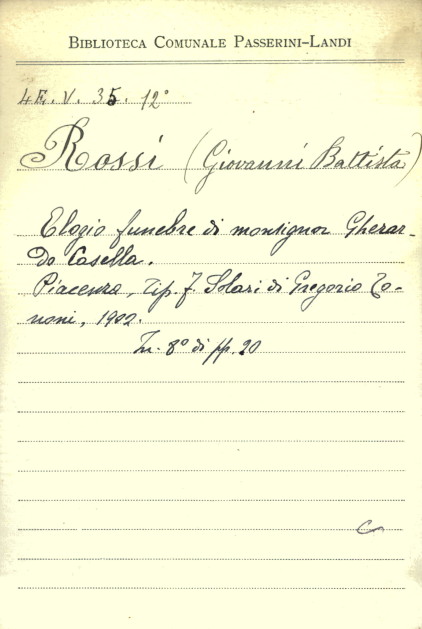 BIBLIOTECA COMUNALE PASSERINI-LANDI
4E. V. 35. 12°
Rossi (Giovanni Battista)
Elogio funebre di monsignor Gherar-
do Casella.
Piacenza, Tip. F. Solari di Gregorio To-
noni, 1902.
In-8° di pp. 20
C